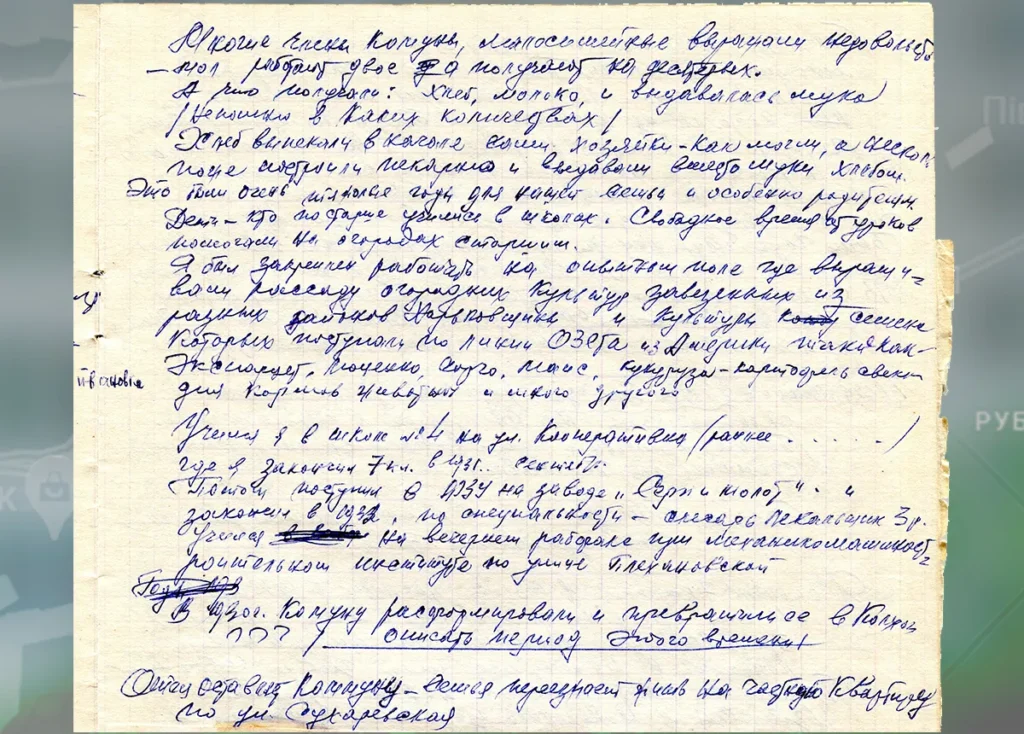 Многие члены Комуны, малосемейные выражали недовольство
– мол работают двое а получают на десятерых.
А что получали: хлеб, молоко, и выдавалась мука
/ Непомню в каких количествах /
Хлеб выпекали в начале сами хозяйки – как могли, а несколько
позже построили пекарню и выдавали вместо муки хлебом.
Это были очень тяжолые годы для нашей семьи и особенно родителям.
Дети – кто постарше учились в школах. Свободное время от уроков
помогали на огородах старшим.
Я был закреплен работать на опытном поле где выращи-
вали рассаду огородных культур завезенных из
разных районов Харьковщины и культуры семена
которых поступали по линии ОЗЕТа из Америки такие как –
Эспарцет, Сорго, Маис, Кукуруза – картофель
для кормов животных и много другого
Учился я в школе №4 на ул. Кооперативна (ранее . . . . . . )
где я закончил 7 кл. в 1931..
Потом поступил в ФЗУ на заводе „Серп и молот" и
закончил в 1932, по специальности – слесарь лекальщик 3 р.
Учился на вечернем рабфаке при Механикомашиност-
роительном институте по улице Плехановской
В 1930г. Комуну расформировали и превратили ее в Колхоз
??? / описать период этого времени /
(Отец оставляет Коммуну – семья переезжает жить на частную квартиру
по ул. Сухаревская